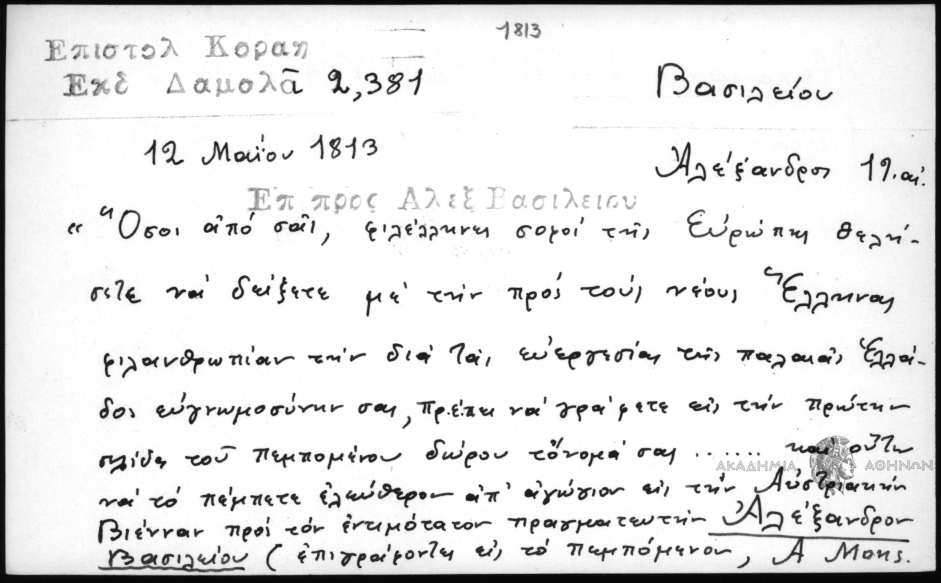 1813
Επιστολ Κοραη
Εκδ Δαμαλᾶ 2,381
Βασιλείου
12 Μαΐου 1813
Ἀλέξανδρος 19. αἰ.
Επ προς Αλεξ Βασιλειου
« Ὅσοι ἀπό σᾶς, φιλέλληνες σοφοί τῆς Εὐρώπης θελή-
σετε νά δείξετε μέ τήν πρός τούς νέους Ἕλληνας
φιλανθρωπίαν τήν διά τάς εὐεργεσίας τῆς παλαιᾶς Ἑλλά-
δος εὐγνωμοσύνην σας, πρέπει νά γράφετε εἰς τήν πρώτην
σελίδα τοῦ πεμπομένου δώρου τὄνομά σας ...... καί οὕτω
ΑΚΑΔΗΜΙΑ ΑΘΗΝΩΝ
νά τό πέμπετε ἐλεύθερον ἀπ' ἀγώγιον εἰς τήν Αὐστριακήν
Βιένναν πρός τόν ἐντιμότατον πραγματευτήν Ἀλέξανδρον
Βασιλείου ( ἐπιγράφοντες εἰς τό πεμπόμενον, Α Mons.